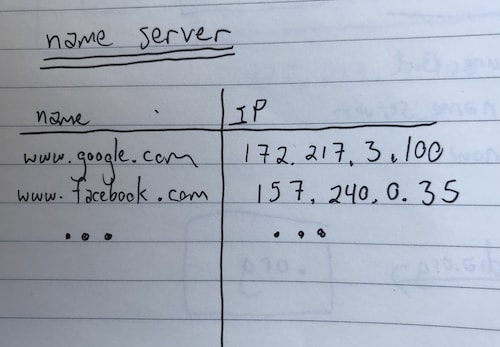 name server
name IP
www.google.com 172.217.3.100
www.facebook.com 157.240.0.35
... ...